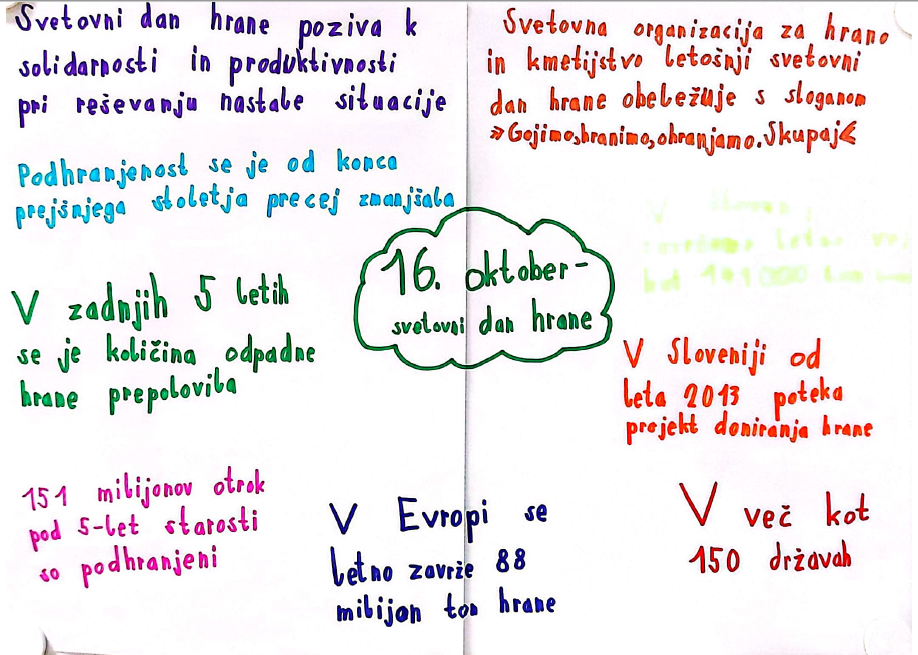 Svetovni dan hrane poziva k
solidarnosti in produktivnosti
pri reševanju nastale situacije
Svetovna organizacija za hrano
in kmetijstvo letošnji svetovni
dan hrane obeležuje s sloganom
»Gojimo,hranimo,ohranjamo.Skupaj«
Podhranjenost se je od konca
prejšnjega stoletja precej zmanjšala
V
zavržemo letno
kot
16. oktober-
svetovni dan hrane
V zadnjih 5 letih
se je količina odpadne
hrane prepolovila
V Sloveniji od
leta 2013 poteka
projekt doniranja hrane
151 milijonov otrok
pod 5-let starosti
so podhranjeni
V Evropi se
letno zavrže 88
milijon ton hrane
V več kot
150 državah